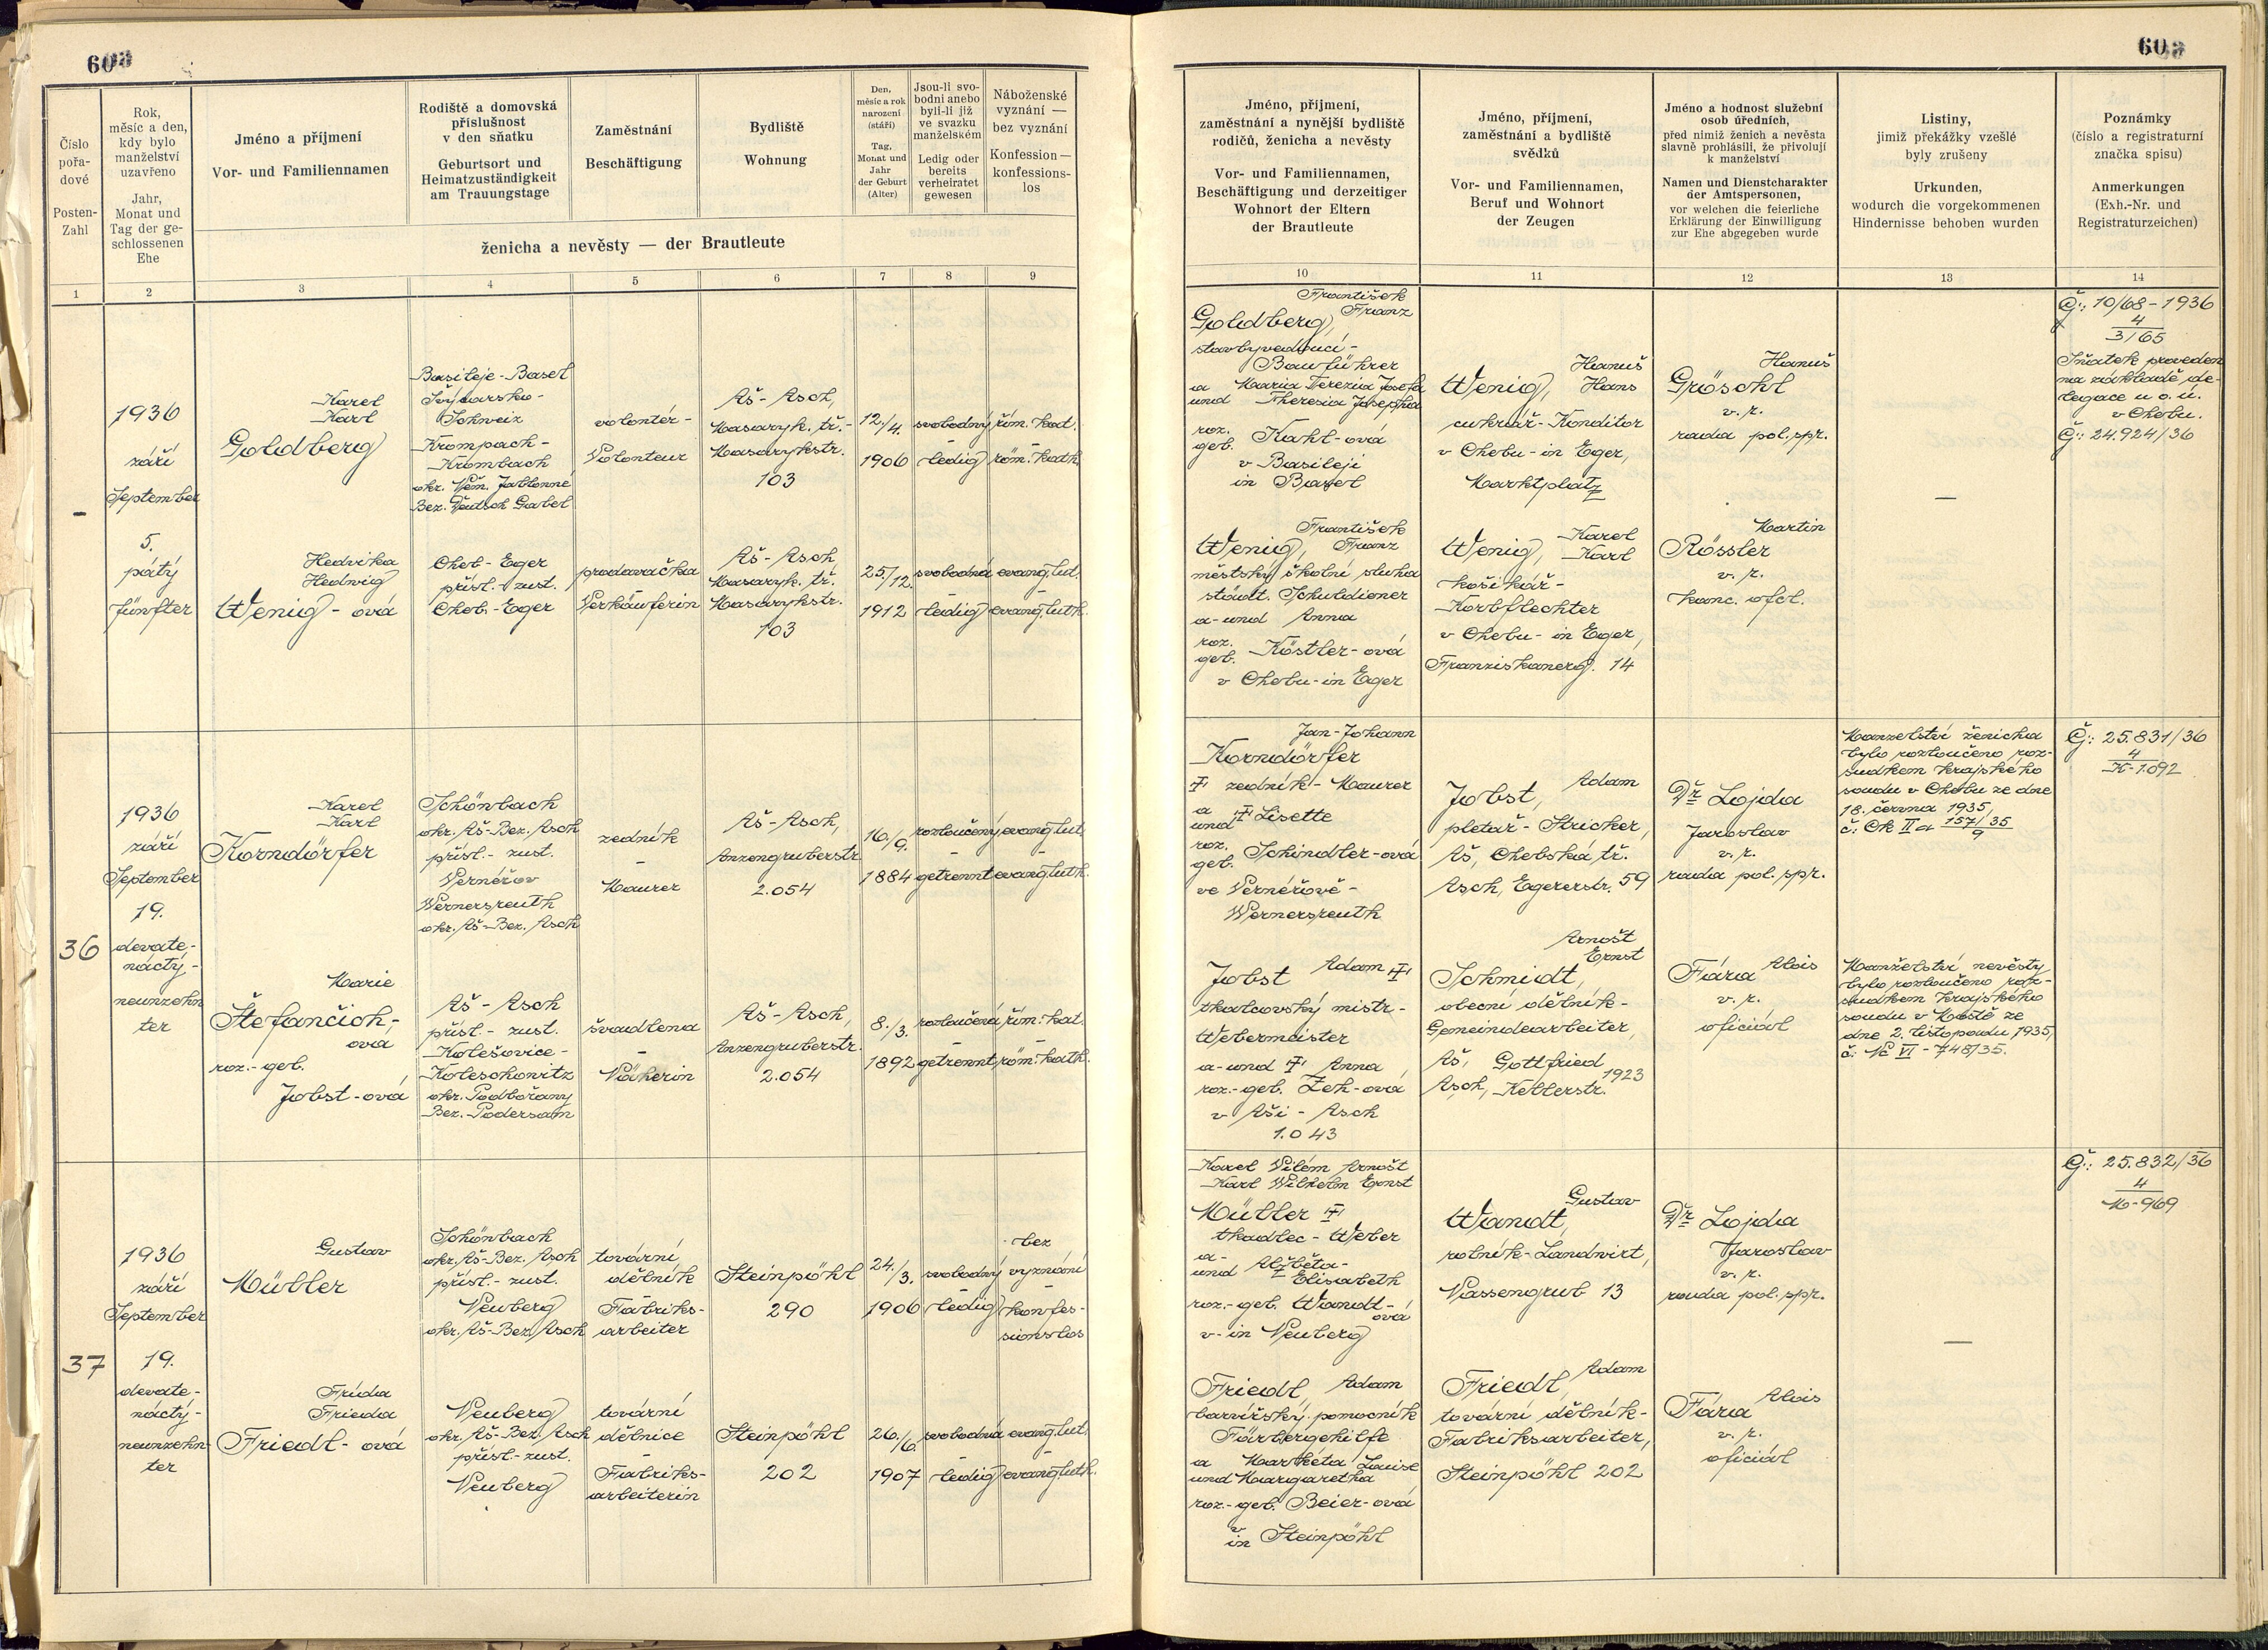 60a
60a
Číslo
pořa-
dové
Posten-
Zahl
Rok,
měsíc a den,
kdy bylo
manželství
uzavřeno
Jahr,
Monat und
Tag der ge-
schlossenen
Ehe
Jméno a příjmení
Vor- und Familiennamen
Rodiště a domovská
příslušnost
v den sňatku
Geburtsort und
Heimatzuständigkeit
am Trauungstage
Zaměstnání
Beschäftigung
Bydliště
Wohnung
Den,
měsíc a rok
narození
(stáří)
Tag,
Monat und
Jahr
der Geburt
(Alter)
Jsou-li svo-
bodni anebo
byli-li již
ve svazku
manželském
Ledig oder
bereits
verheiratet
gewesen
Náboženské
vyznání —
bez vyznání
Konfession —
konfessions-
los
ženicha a nevěsty — der Brautleute
Jméno, příjmení,
zaměstnání a nynější bydliště
rodičů, ženicha a nevěsty
Vor- und Familiennamen,
Beschäftigung und derzeitiger
Wohnort der Eltern
der Brautleute
Jméno, příjmení,
zaměstnání a bydliště
svědků
Vor- und Familiennamen,
Beruf und Wohnort
der Zeugen
Jméno a hodnost služební
osob úředních,
před nimiž ženich a nevěsta
slavně prohlásili, že přivolují
k manželství
Namen und Dienstcharakter
der Amtspersonen,
vor welchen die feierliche
Erklärung der Einwilligung
zur Ehe abgegeben wurde
Listiny,
jimiž překážky vzešlé
byly zrušeny
Urkunden,
wodurch die vorgekommenen
Hindernisse behoben wurden
Poznámky
(číslo a registraturní
značka spisu)
Anmerkungen
(Exh.-Nr. und
Registraturzeichen)
1 2 3 4 5 6 7 8 9 10 11 12 13 14
-
1936
září
September
5.
pátý
fünfter
Karel
Karl
Goldberg
Basileje-Basel
Švýcarsko-
Schweiz
Krompach-
Krombach
okr. Něm. Jablonné
Bez. Deutsch Gabel
volontér-
Volonteur
Aš-Asch,
Masaryk. tř.-
Masarykstr.
103
12./4.
1906
svobodný
ledig
řím. kat.
röm. kath.
Hedvika
Hedwig
Wenig-ová
Cheb-Eger
přísl.-zust.
Cheb-Eger
prodavačka
Verkäuferin
Aš-Asch,
Masaryk. tř.
Masarykstr.
103
25./12.
1912
svobodná
ledig
evang. lut.
evang. luth.
František
Franz
Goldberg,
stavbyvedoucí-
Bauführer
a Maria Terezia Josefa
und Theresia Josepha
roz.
geb. Kahl-ová
v Basileji
in Basel
Hanuš
Wenig, Hans
cukrář-Konditor
v Chebu-in Eger,
Marktplatz
Hanuš
Gröschl
v. r.
rada pol. spr.
—
Č.: 10/68-1936
4
3/65
Sňatek proveden
na základě de-
legace u o. ú.
v Chebu.
Č.: 24.924/36
František
Wenig, Franz
městský školní sluha
städt. Schuldiener
a-und Anna
roz.
geb. Köstler-ová
v Chebu-in Eger
Karel
Wenig, Karl
košikář-
Korbflechter
v Chebu-in Eger,
Franziskanerg. 14
Martin
Rössler
v. r.
kanc. ofcl.
36
1936
září
September
19.
devate-
náctý-
neunzehn
ter
Karel
Karl
Korndörfer
Schönbach
okr. Aš-Bez. Asch
přísl.-zust.
Vernéřov
Wernersreuth
okr. Aš-Bez. Asch
zedník
-
Maurer
Aš-Asch,
Anzengruberstr.
2.054
16./9.
1884
rozloučený
-
getrennt
evang. lut.
-
evang. luth.
Marie
Štefančich-
ová
roz.-geb.
Jobst-ová
Aš-Asch
přísl.-zust.
Kolešovice-
Koleschowitz
okr. Podbořany
Bez. Podersam
švadlena
-
Näherin
Aš-Asch,
Anzengruberstr.
2.054
8./3.
1892
rozloučená
-
getrennt
řím. kat.
-
röm. kath.
Jan-Johann
Korndörfer
† zedník-Maurer
a
und † Lisette
roz.
geb. Schindler-ová
ve Vernéřově-
Wernersreuth
Adam
Jobst,
pletař-Stricker,
Aš, Chebská tř.
Asch, Egererstr. 59
Dr Lojda
Jaroslav
v. r.
rada pol. spr.
Manzelství ženicha
bylo rozloučeno roz-
sudkem krajského
soudu v Chebu ze dne
18. června 1935,
č: Ck II a 157/35
9
Č.: 25.831/36
4
K-1.092
Jobst Adam †
tkalcovský mistr-
Webermeister
a-und † Anna
roz.-geb. Zeh-ová
v Aši-Asch
1.043
Arnošt
Ernst
Schmidt,
obecní dělník-
Gemeindearbeiter,
Aš, Gottfried
Asch, Kellerstr. 1923
Alois
Fára
v. r.
oficiál
Manželství nevěsty
bylo rozloučeno roz-
sudkem krajského
soudu v Mostě ze
dne 2. listopadu 1935,
č: Nc VI-748/35.
37
1936
září
September
19.
devate-
náctý-
neunzehn-
ter
Gustav
Müller
Schönbach
okr. Aš-Bez. Asch
přísl.-zust.
Neuberg
okr. Aš-Bez. Asch
tovární
dělník
-
Fabriks-
arbeiter
Steinpöhl
290
24./3.
1906
svobodný
-
ledig
bez
vyznání
-
konfes-
sionslos
Frída
Frieda
Friedl-ová
Neuberg
okr. Aš-Bez. Asch
přísl.-zust.
Neuberg
tovární
dělnice
-
Fabriks-
arbeiterin
Steinpöhl
202
26./6.
1907
svobodná
-
ledig
evang. lut.
-
evang. luth.
Karel Vilém Arnošt
Karl Wilhelm Ernst
Müller †
tkadlec-Weber
a-
und Alžběta-
Elisabeth
roz.-geb. Wandt-
ová
v-in Neuberg
Gustav
Wandt,
rolník-Landwirt,
Nassengrub 13
Dr Lojda
Jaroslav
v. r.
rada pol. spr.
—
Č.: 25.832/36
4
M-969
Friedl, Adam
barvířský pomocník
Färbergehilfe
a Markéta Louise
und Margaretha
roz.-geb. Beier-ová
v
in Steinpöhl
Adam
Friedl,
tovární dělník-
Fabriksarbeiter,
Steinpöhl 202
Alois
Fára
v. r.
oficiál